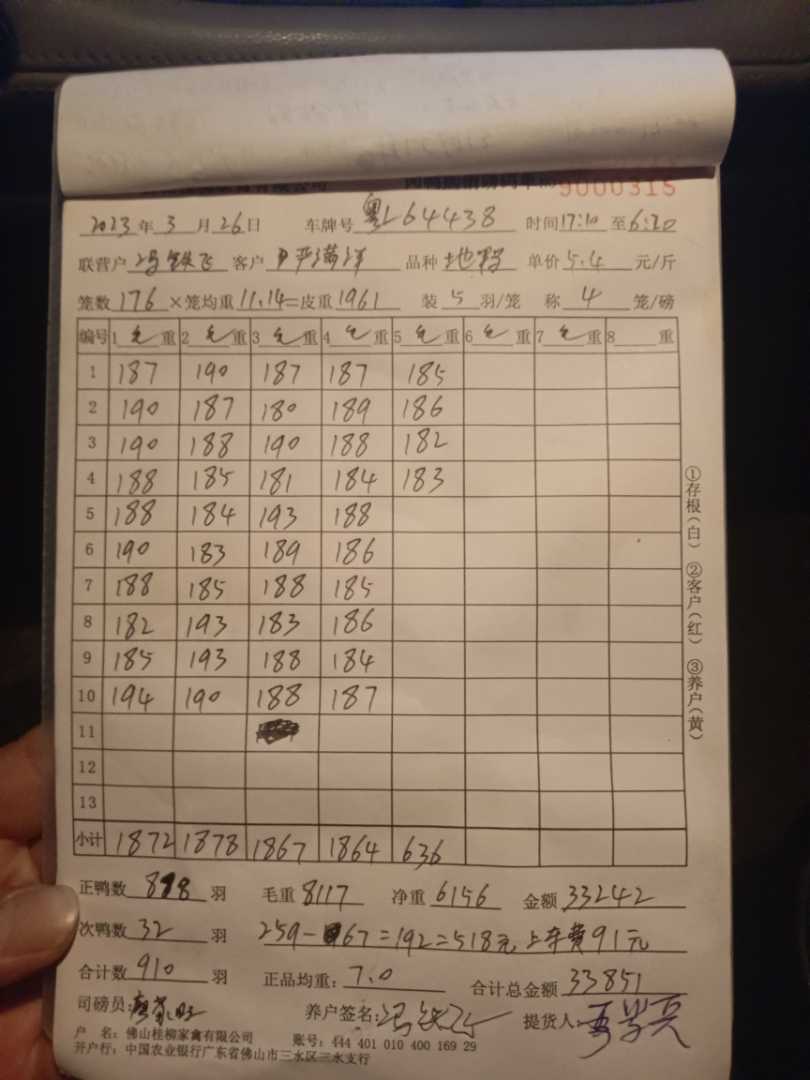 9000315
2023年3月26日 车牌号 粤L64438 时间17:10至6:20
联营户 冯铁飞 客户 品种 单价5.4元/斤
笼数176×笼均重11.14=皮重1961 装5羽/笼 称4笼/磅
编号 1毛重 2毛重 3毛重 4毛重 5毛重 6毛重 7毛重 8 重
1 187 190 187 187 185
2 190 187 180 189 186
3 190 188 190 188 182
4 188 185 181 184 183
5 188 184 193 188
6 190 183 189 186
7 188 185 188 185
8 182 193 183 186
9 185 193 188 184
10 194 190 188 187
11
12
13
小计 1872 1878 1867 1864 636
正鸭数878羽 毛重8117 净重6156 金额33242
次鸭数32羽 259-67=192=518元 上车费91元
合计数910羽 正品均重:7.0 合计总金额33851
司磅员: 养户签名:冯铁飞 提货人:
户 名:佛山桂柳家禽有限公司 账号:444 401 010 400 169 29
开户行:中国农业银行广东省佛山市三水区三水支行
①存根(白) ②客户(红) ③养户(黄)